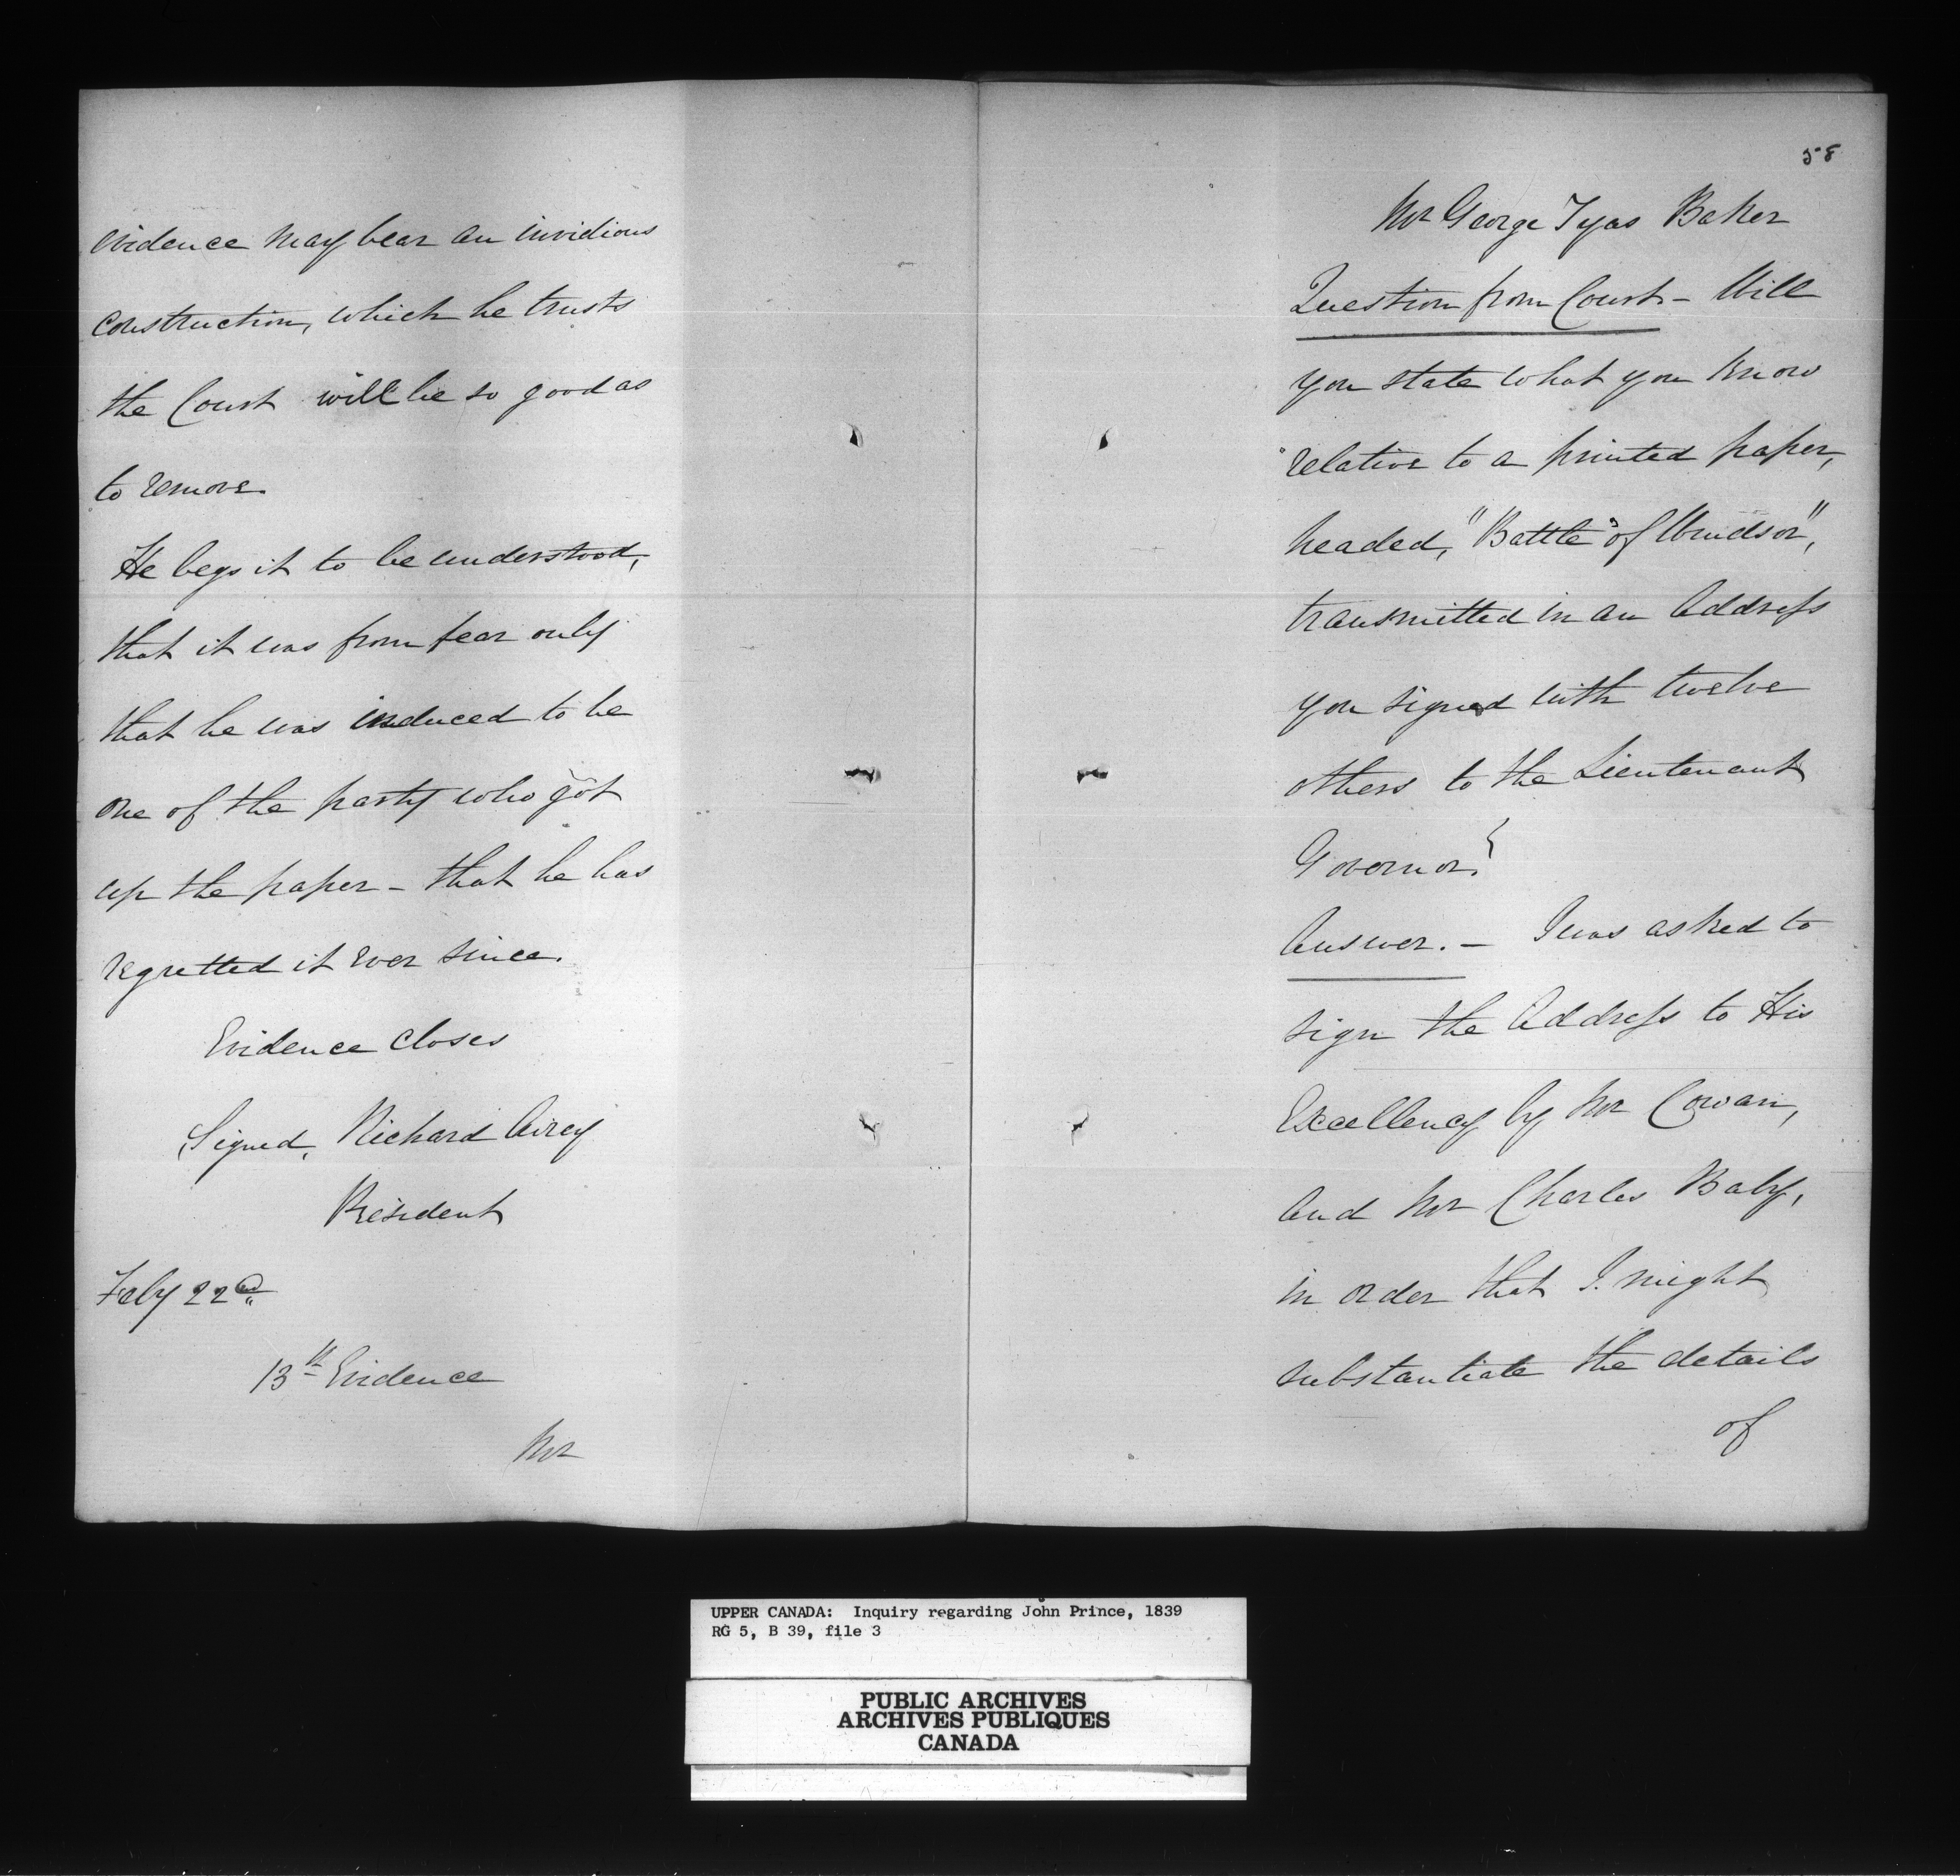 evidence may bear an invidious
construction, which he trusts
the Court will be so good as
to remove.
He begs it to be understood,
that it was from fear only
that he was induced to be
one of the party who got
up the paper - that he has
regretted it ever since.
Evidence closes
Signed, Richard Airey
President
Feby 22d
13th Evidence
Mr
58
Mr George Tyas Baker
Question from Court - Will
you state what you know
relative to a printed paper,
headed, "Battle of Windsor",
transmitted in an Address
you signed with twelve
others to the Lieutenant
Governor?
Answer. - I was asked to
sign the Address to His
Excellency by Mr Cowan,
and Mr Charles Baby,
in order that I might
substantiate the details
of
UPPER CANADA: Inquiry regarding John Prince, 1839
RG 5, B 39, file 3
PUBLIC ARCHIVES
ARCHIVES PUBLIQUES
CANADA